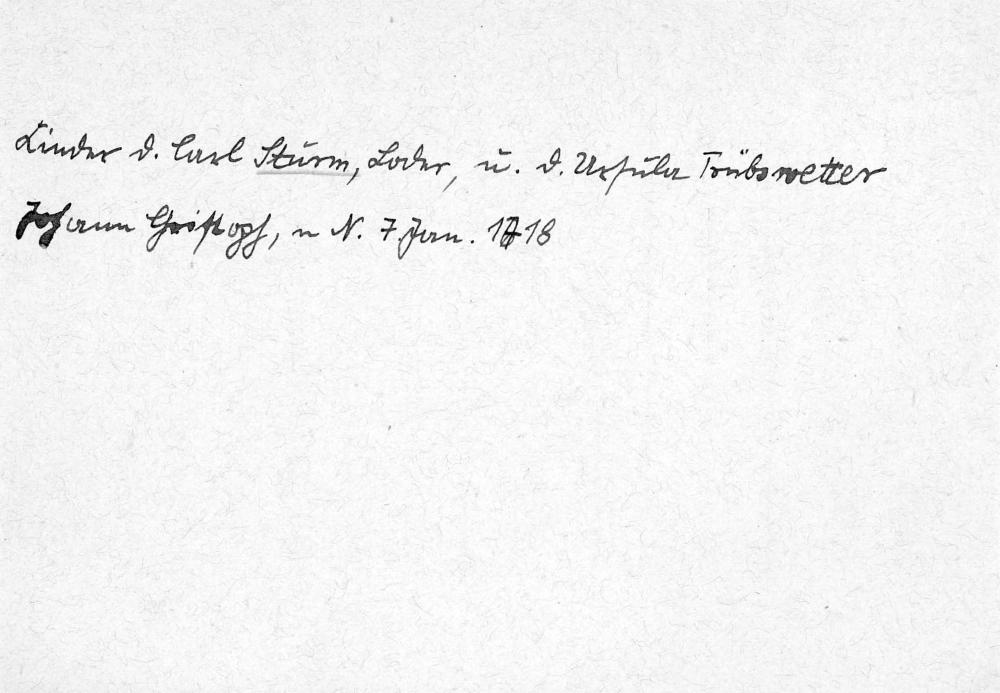 Kinder d. Carl Sturm, Loder, u. d. Ursula Trübswetter
Johann Christoph, n N. 7 Jan. 1718